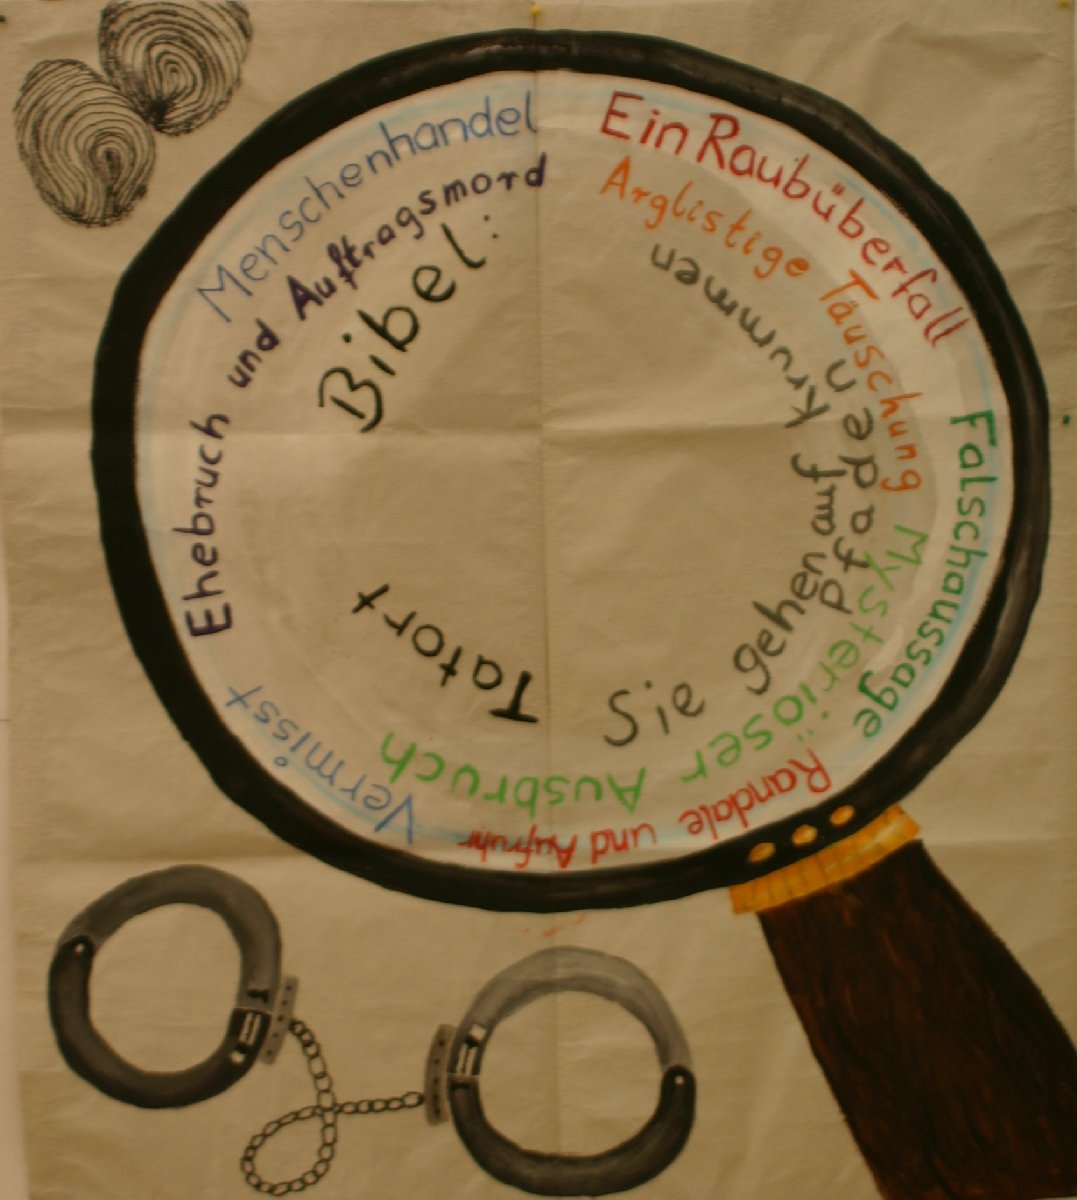 Tatort Bibel:
Sie gehen auf krummen
Pfaden
Menschenhandel
Ein Raubüberfall
Falschaussage
Randale und Aufruhr
Vermisst
Ehebruch und Auftragsmord
Arglistige Täuschung
Mysteriöser Ausbruch